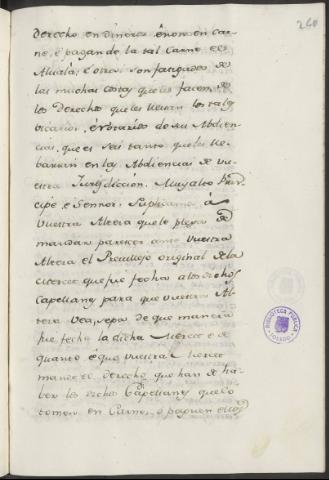 260
derecho en dineros énon en car-
ne, é pagan de la tal Carne el
Alvala; é otros son fatigados de
las muchas costas que les facen, de
los Derechos que les llevan los tales
Vicarios, é Notarios de su Abdien-
cia, que es seis tanto que les lle-
barian en las Abdiencias de vu-
estra Jurisdiccion. Muy alto Prin-
cipe, é Sennor, Suplicamos á
Vuestra Alteza que le plega de
mandar parescer ante vuestra
Alteza el Previllejo original de la
merced que fue fecha a los dichos
Capellanes para que vuestra Al-
teza vea, sepa de que manera
fue fecha la dicha Merced é de
quanto é que vuestra Merced
mande el derecho que han de ha-
ber los dichos Capellanes que lo
tomen en Carne, o paguen ellos
BIBLIOTECA PUBLICA
TOLEDO